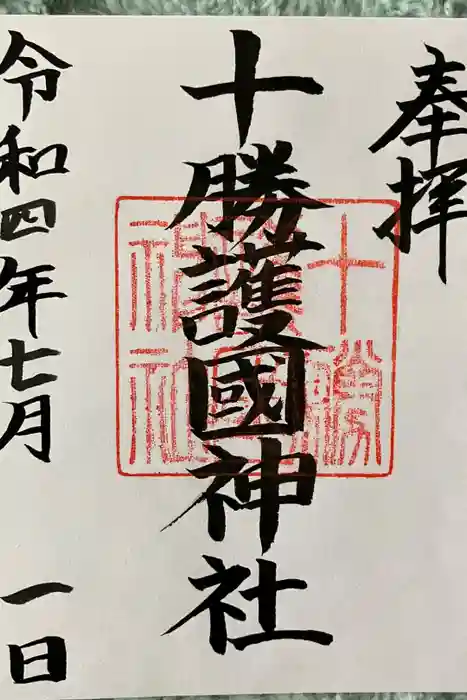 奉拝
十勝護國神社
十勝
護國
神社
令和四年七月一日